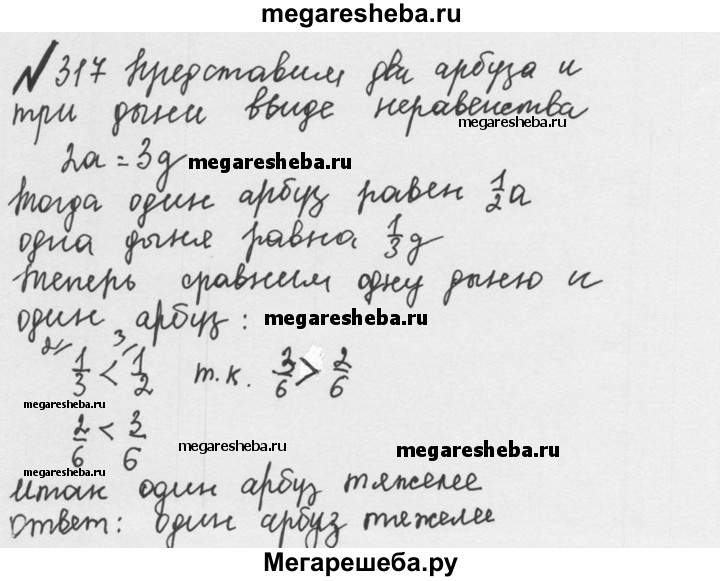 megaresheba.ru
№ 317 Представим два арбуза и
три дыни ввиде неравенства
megaresheba.ru
2а = 3д megaresheba.ru
Тогда один арбуз равен 1/2 а
одна дыня равна 1/3 д
Теперь сравним одну дыню и
один арбуз: megaresheba.ru
2/ 3/
1/3 < 1/2 т.к. 3/6 > 2/6
megaresheba.ru
2/6 < 3/6 megaresheba.ru megaresheba.ru
Итак один арбуз тяжелее
Ответ: один арбуз тяжелее
Мегарешеба.ру